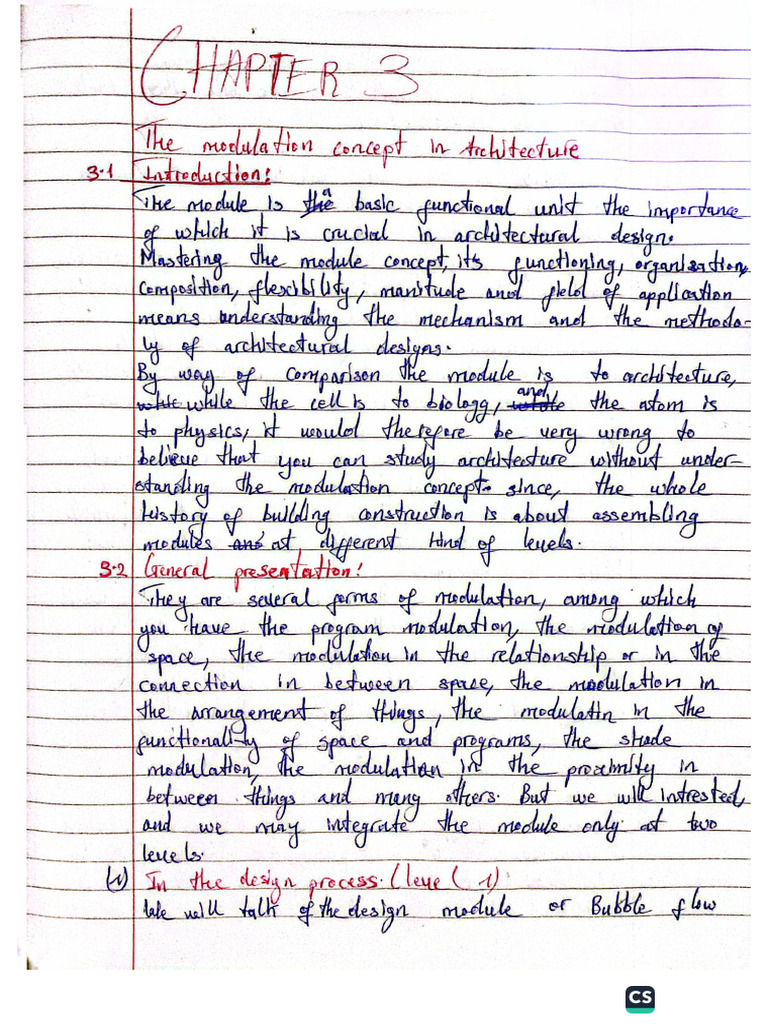 CHAPTER 3
The modulation concept in Architecture
3.1 Introduction:
The module is a basic functional unit the importance
of which it is crucial in architectural design.
Mastering the module concept, its functioning, organisation,
composition, flexibility, manitude and field of application
means understanding the mechanism and the methodo-
ly of architectural designs.
By way of comparison the module is to architecture,
while the cell is to biology, and the atom is
to physics, it would therefore be very wrong to
believe that you can study architecture without under-
standing the modulation concept. since, the whole
history of building construction is about assembling
modules at different kind of levels.
3.2 General presentation:
They are several forms of modulation, among which
you have the program modulation, the modulation of
space, the modulation in the relationship or in the
connection in between space, the modulation in
the arrangement of things, the modulatin in the
functionality of space and programs, the shade
modulation, the modulation in the proximity in
between things and many others. But we will intrested,
and we may integrate the module only at two
levels.
(1) In the design process. (level 1).
We will talk of the design module or Bubble flow
CS